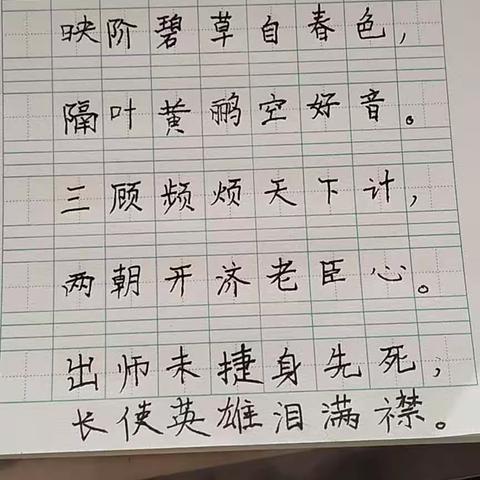 映阶碧草自春色，
隔叶黄鹂空好音。
三顾频烦天下计，
两朝开济老臣心。
出师未捷身先死，
长使英雄泪满襟。